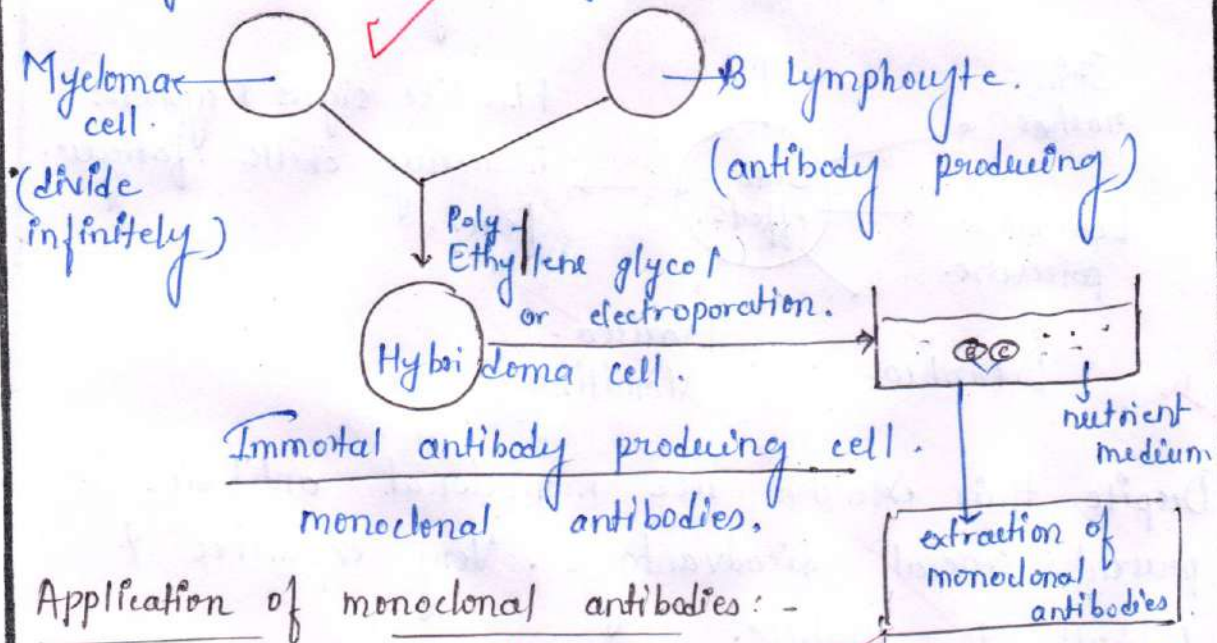 Myeloma cell.
(divide infinitely)
B Lymphocyte.
(antibody producing)
Poly
Ethylene glycol
or electroporation.
Hybridoma cell.
nutrient medium
Immortal antibody produing cell.
monoclonal antibodies.
extraction of
monoclonal
antibodies
Application of monoclonal antibodies: -